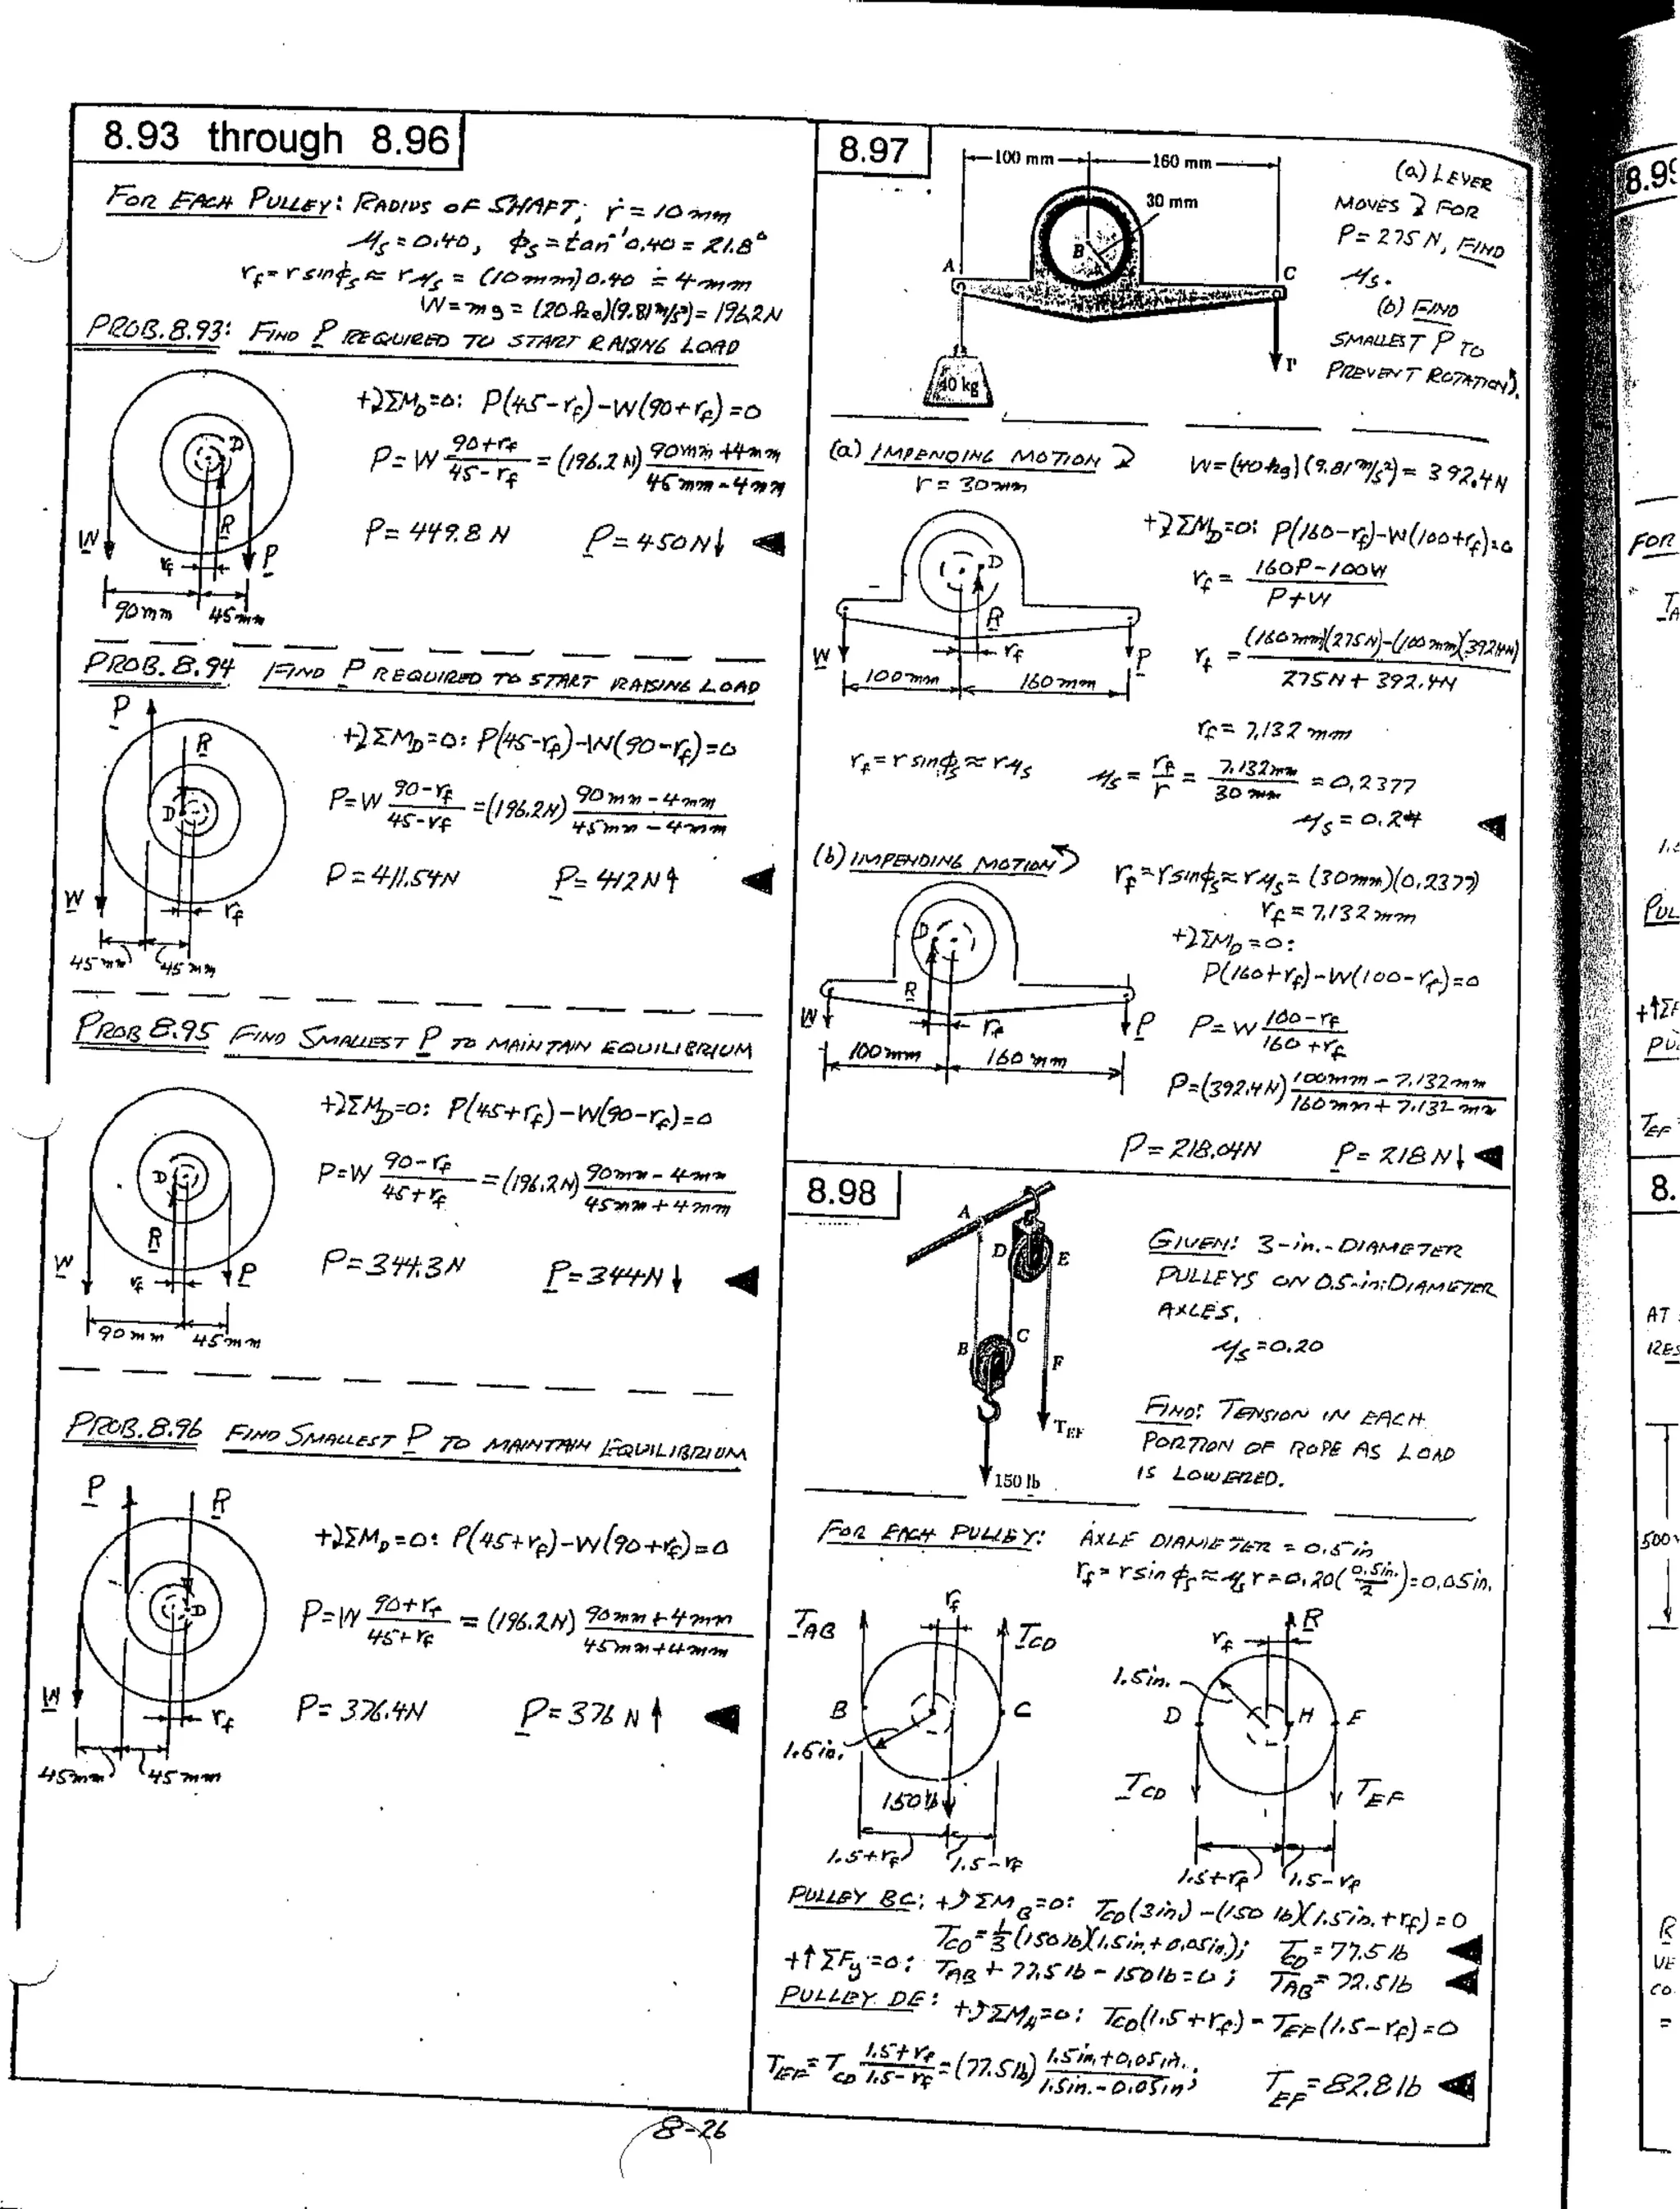 8.93 through 8.96
FOR EACH PULLEY: RADIUS OF SHAFT, r = 10 mm
μs = 0.40, φs = tan⁻¹ 0.40 = 21.8°
rf = r sin φs ≈ r μs = (10 mm) 0.40 = 4 mm
W = mg = (20 kg)(9.81 m/s²) = 196.2 N
PROB. 8.93: FIND P REQUIRED TO START RAISING LOAD
+⤵ΣM_D = 0: P(45 - rf) - W(90 + rf) = 0
P = W (90 + rf)/(45 - rf) = (196.2 N) (90 mm + 4 mm)/(45 mm - 4 mm)
P = 449.8 N P = 450 N ↓ ◀
D
W R P
rf
90 mm 45 mm
PROB. 8.94 FIND P REQUIRED TO START RAISING LOAD
P
R
+⤵ΣM_D = 0: P(45 - rf) - W(90 - rf) = 0
P = W (90 - rf)/(45 - rf) = (196.2 N) (90 mm - 4 mm)/(45 mm - 4 mm)
D
P = 411.54 N P = 412 N ↑ ◀
W rf
45 mm 45 mm
PROB 8.95 FIND SMALLEST P TO MAINTAIN EQUILIBRIUM
+⤵ΣM_D = 0: P(45 + rf) - W(90 - rf) = 0
P = W (90 - rf)/(45 + rf) = (196.2 N) (90 mm - 4 mm)/(45 mm + 4 mm)
D
R
P = 344.3 N P = 344 N ↓ ◀
W rf P
90 mm 45 mm
PROB. 8.96 FIND SMALLEST P TO MAINTAIN EQUILIBRIUM
P R
+⤵ΣM_D = 0: P(45 + rf) - W(90 + rf) = 0
P = W (90 + rf)/(45 + rf) = (196.2 N) (90 mm + 4 mm)/(45 mm + 4 mm)
D
P = 376.4 N P = 376 N ↑ ◀
W rf
45 mm 45 mm
8.97
100 mm 160 mm
30 mm
B
A C
40 kg
P
(a) LEVER
MOVES ⤵ FOR
P = 275 N, FIND
μs.
(b) FIND
SMALLEST P TO
PREVENT ROTATION ⤴.
(a) IMPENDING MOTION ⤵ W = (40 kg)(9.81 m/s²) = 392.4 N
r = 30 mm
+⤵ΣM_D = 0: P(160 - rf) - W(100 + rf) = 0
rf = (160P - 100W)/(P + W)
D
R
rf = ((160 mm)(275 N) - (100 mm)(392.4 N))/(275 N + 392.4 N)
W rf P
100 mm 160 mm
rf = 7.132 mm
rf = r sin φs ≈ r μs μs = rf/r = 7.132 mm/30 mm = 0.2377
μs = 0.24 ◀
(b) IMPENDING MOTION ⤴ rf = r sin φs ≈ r μs = (30 mm)(0.2377)
rf = 7.132 mm
+⤵ΣM_D = 0:
P(160 + rf) - W(100 - rf) = 0
D
R
W rf P
P = W (100 - rf)/(160 + rf)
100 mm 160 mm
P = (392.4 N) (100 mm - 7.132 mm)/(160 mm + 7.132 mm)
P = 218.04 N P = 218 N ↓ ◀
8.98
A
D E
B C
F
T_EF
150 lb
GIVEN: 3-in.-DIAMETER
PULLEYS ON 0.5-in. DIAMETER
AXLES.
μs = 0.20
FIND: TENSION IN EACH
PORTION OF ROPE AS LOAD
IS LOWERED.
FOR EACH PULLEY: AXLE DIAMETER = 0.5 in
rf = r sin φs ≈ μs r = 0.20 (0.5 in./2) = 0.05 in.
T_AB rf T_CD
B C
1.5 in.
150 lb
1.5 + rf 1.5 - rf
rf R
1.5 in.
D H E
T_CD T_EF
1.5 + rf 1.5 - rf
PULLEY BC: +⤴ΣM_B = 0: T_CD (3 in) - (150 lb)(1.5 in. + rf) = 0
T_CD = 1/3 (150 lb)(1.5 in + 0.05 in.); T_CD = 77.5 lb ◀
+↑ΣFy = 0: T_AB + 77.5 lb - 150 lb = 0; T_AB = 72.5 lb ◀
PULLEY DE: +⤴ΣM_H = 0: T_CD (1.5 + rf) - T_EF (1.5 - rf) = 0
T_EF = T_CD (1.5 + rf)/(1.5 - rf) = (77.5 lb) (1.5 in. + 0.05 in.)/(1.5 in. - 0.05 in); T_EF = 82.8 lb ◀
8-26
8.9
FOR
+↑ΣF
T_EF
8.
AT
RES
500
R
VE
CO
=